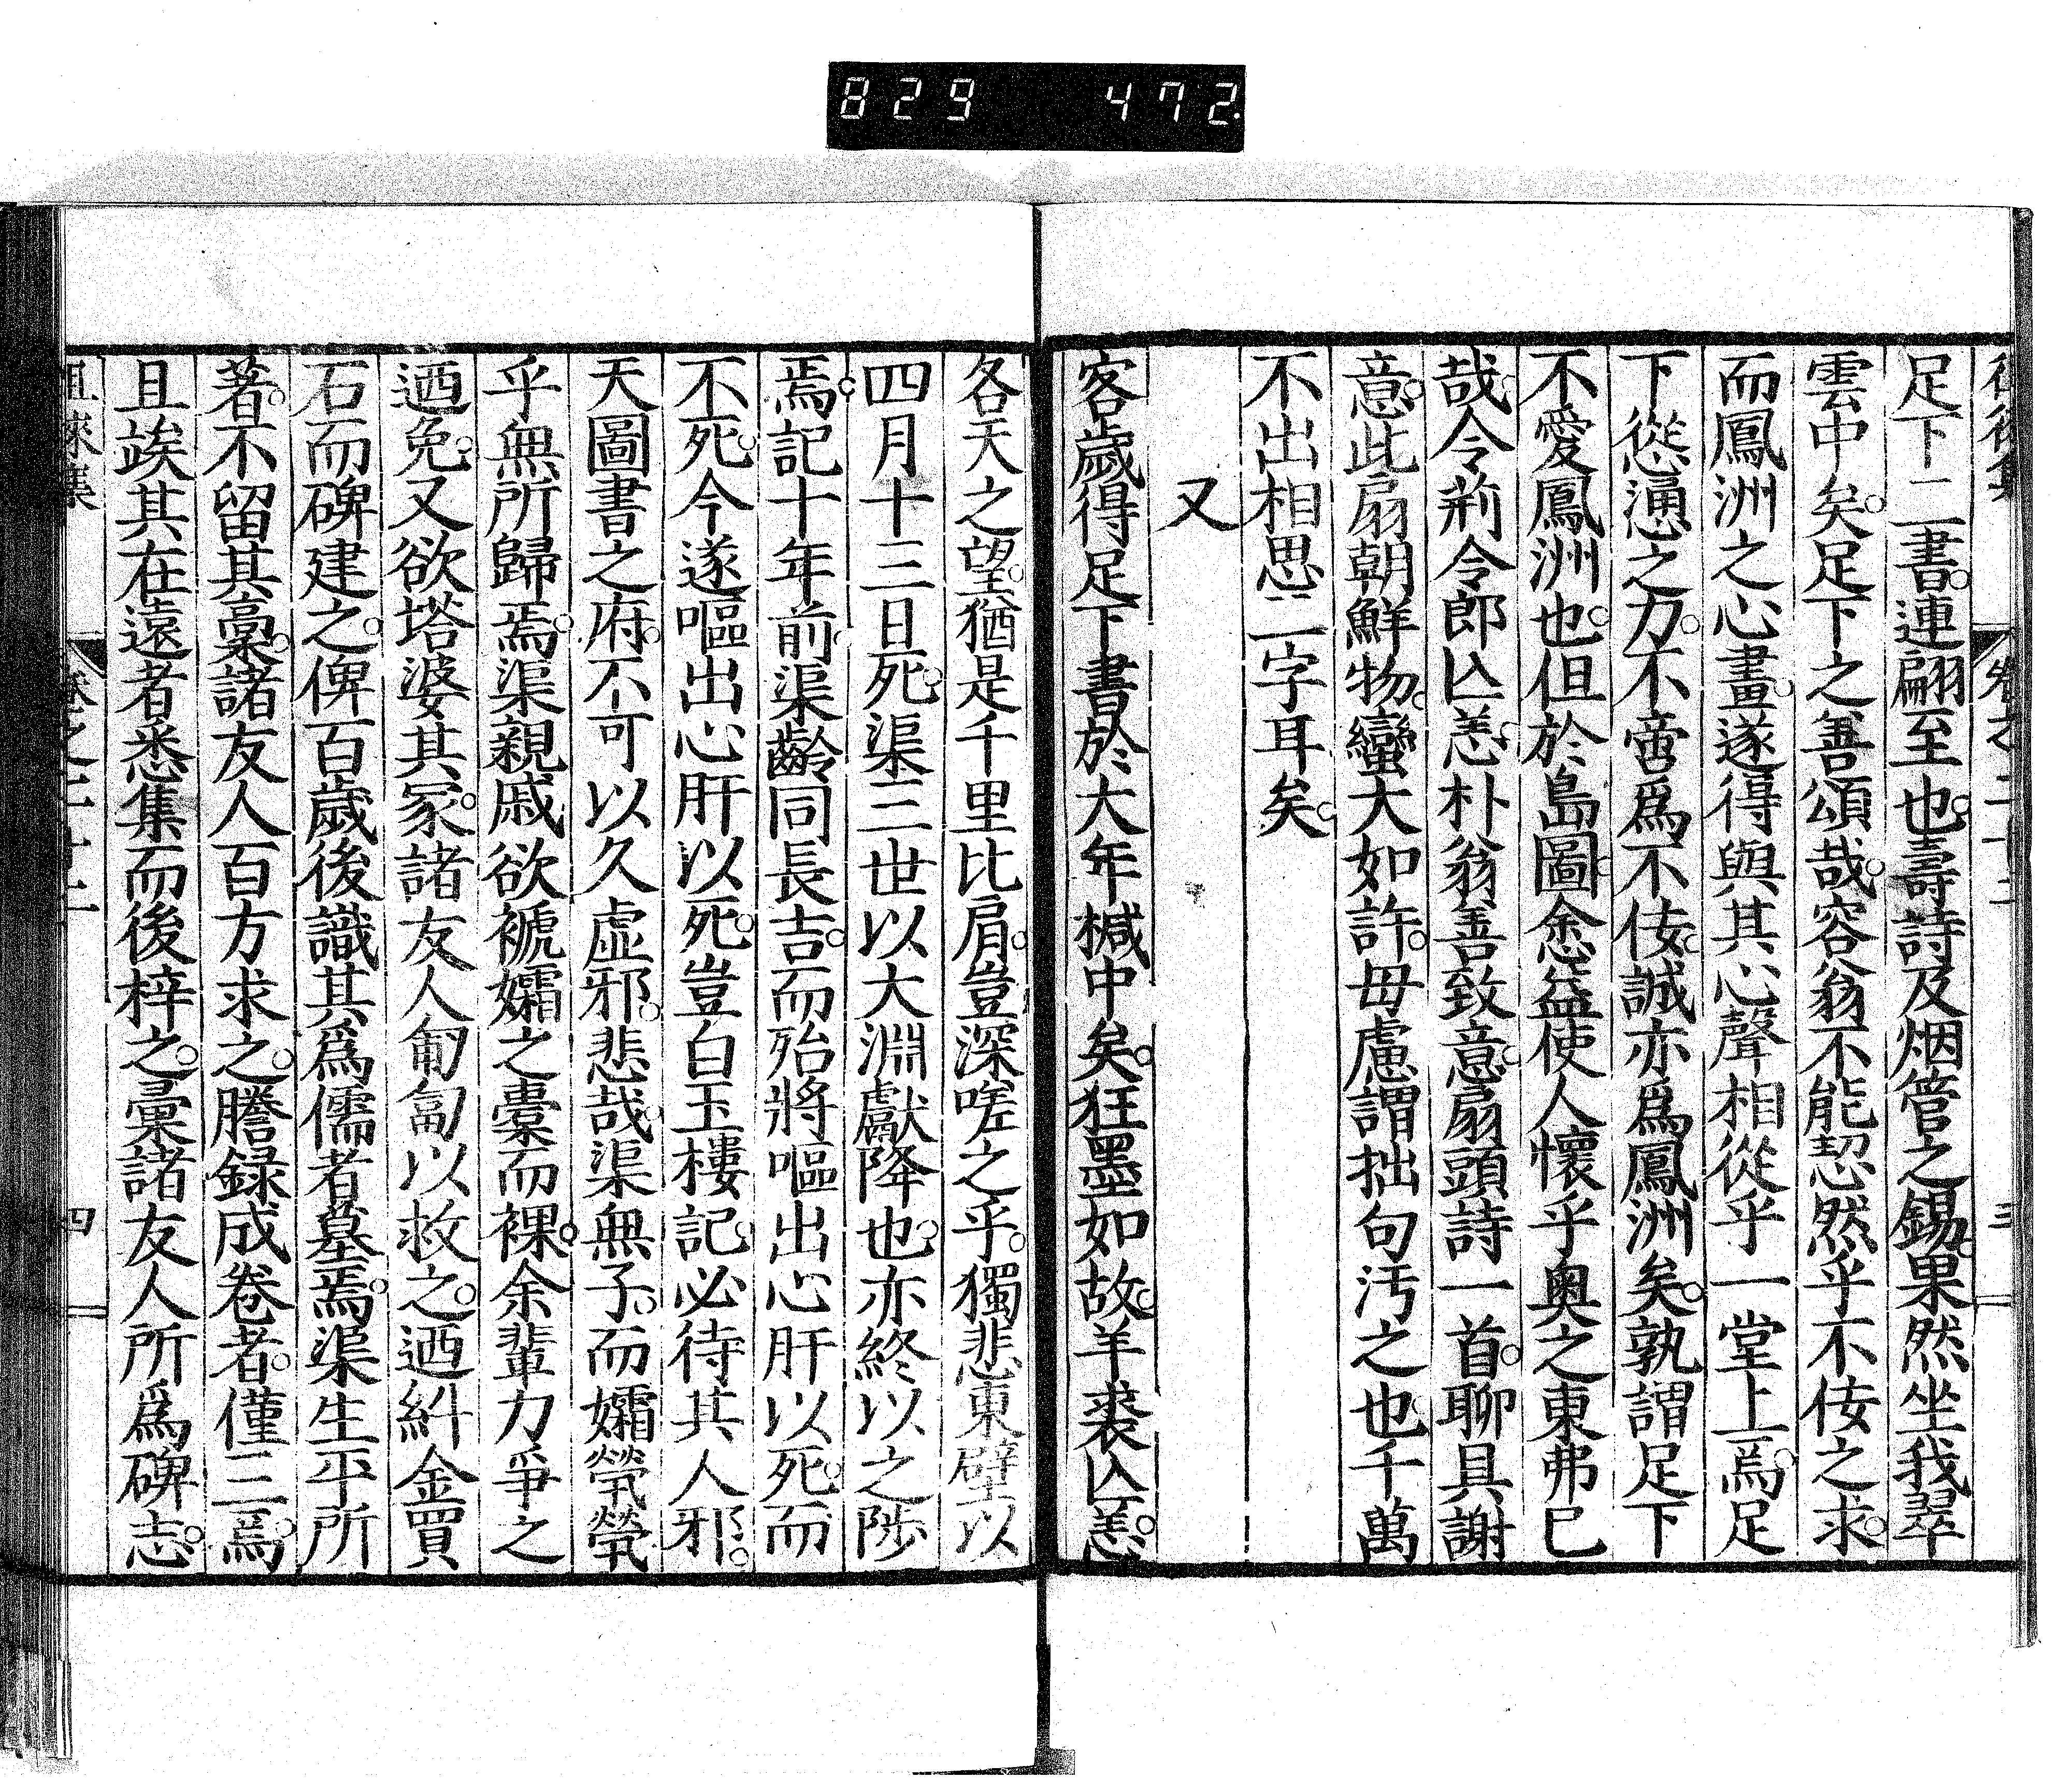 829 472.
足下二書。連翩至也。壽詩及烟管之錫。果然坐我翠
雲中矣。足下之善頌哉。容翁不能恝然乎不佞之求。
而鳳洲之心畫。遂得與其心聲相從乎一堂上焉。足
下慫慂之力。不啻爲不佞。誠亦爲鳳洲矣。孰謂足下
不愛鳳洲也。但於島圖。悆益使人懷乎奥之東弗已
哉。令荊令郎亾恙。朴翁善致意。扇頭詩一首。聊具謝
意。此扇朝鮮物。蠻大如許。毋慮謂拙句汚之也。千萬
不出相思二字耳矣。
又
客歲得足下書於大年椷中矣。狂墨如故。羊裘亾恙。
各天之望。猶是千里比肩。豈深嗟之乎。獨悲東壁以
四月十三日死。渠三世以大淵獻降也。亦終以之陟
焉。記十年前。渠齡同長吉。而殆將嘔出心肝以死。而
不死。今遂嘔出心肝以死。豈白玉樓記。必待其人邪。
天圖書之府。不可以久虛邪。悲哉。渠無子。而孀煢煢
乎無所歸焉。渠親戚欲褫孀之橐而裸。余輩力爭之
迺免。又欲塔婆其冢。諸友人匍匐以救之。迺糾金買
石而碑建之。俾百歲後識其爲儒者墓焉。渠生平所
著。不留其稾。諸友人百方求之。謄録成卷者。僅三焉。
且竢其在遠者悉集而後梓之。彙諸友人所爲碑志。
徂徠集
卷之二十二
四